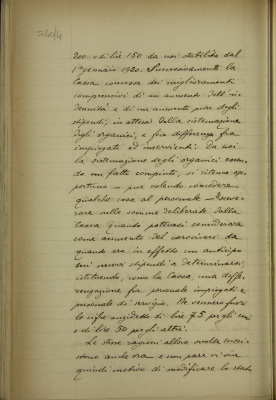 240/4
200 e di lire 150 da noi stabilito dal
1° gennaio 1920. Successivamente la
Cassa concesse dei miglioramenti
comprensivi di un aumento dell'in-
dennità e di un aumento pure degli
stipendi, in attesa della sistemazione
degli organici, e fra differenza fra
impiegati ed inservienti. Da noi
la sistemazione degli organici essen-
do un fatto compiuto, si ritenne op-
portuno - pur volendo concedere
qualche cosa al personale -
nelle somme deliberate dalla
Cassa quanto potevasi considerare
come aumento del caroviveri da
quanto era in effetto un anticipo
sui nuovi stipendi a determinarsi,
istituendo, come la Cassa, una diffe-
renziazione fra personale impiegati e
personale di servizio. Ne vennero fuori
le cifre suddette di lire 75 per gli uni
e di lire 50 per gli altri.
Le stesse ragioni allora svolte sussi-
stono anche ora e non pare vi sia
quindi motivo di modificare lo stato